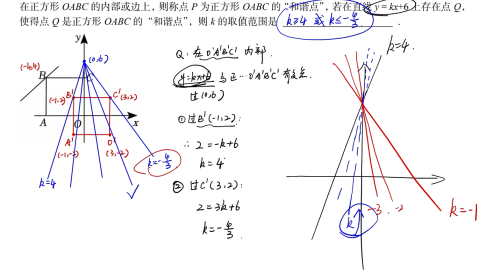 在正方形 OABC 的内部或边上，则称点 P 为正方形 OABC 的“和谐点”，若在直线 y = kx+6 上存在点 Q，
使得点 Q 是正方形 OABC 的“和谐点”，则 k 的取值范围是 k≥4 或 k≤-4/3 .
y
(0,6)
B
B'
(-1,2)
C'(3,2)
A
O
x
A'
(-1,-2)
O'
(3,-2)
k=4
k=-4/3
Q: 在O'A'B'C'内部.
y=kx+6 与正方O'A'B'C'有交点.
过(0,6)
①过B'(-1,2):
∴ 2=-k+6
k=4
② 过C'(3,2):
2=3k+6
k=-4/3.
k=4.
-3
-2
k=-1
k